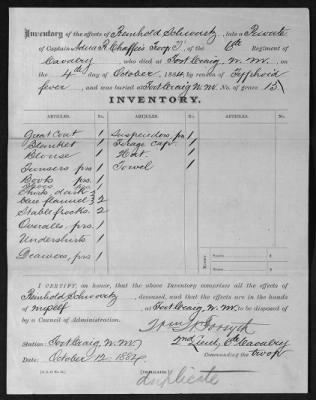 Inventory of the effects of Reinhold Schwartz, late a Private
of Captain Adna R. Chaffee's Troop "I", of the 6th Regiment of
Cavalry, who died at Fort Craig, N. M., on
the 4th day of October, 1884, by reason of Typhoid
fever, and was buried at Fort Craig N. M. No. of grave 157
INVENTORY.
ARTICLES. No. ARTICLES. No. ARTICLES. No.
Great Coat 1 Suspenders, prs. 1
Blanket 1 Forage Cap. 1
Blouse 1 Hat. 1
Trousers prs. 1 Towel 1
Boots prs. 1
Shoes prs. 1
Shirts, dark
blue flannel 2
Stable frocks. 2
Overalls, prs. 1
Undershirts 1
Drawers, prs. 1
Money $
Notes $
I CERTIFY, on honor, that the above Inventory comprises all the effects of
Reinhold Schwartz, deceased, and that the effects are in the hands
of myself, at Fort Craig, N. M. to be disposed of
by a Council of Administration.
Wm W Forsyth
2nd Lieut, 6th Cavalry
Commanding the troop
Station: Fort Craig, N. M.
Date: October 12, 1884.
duplicate